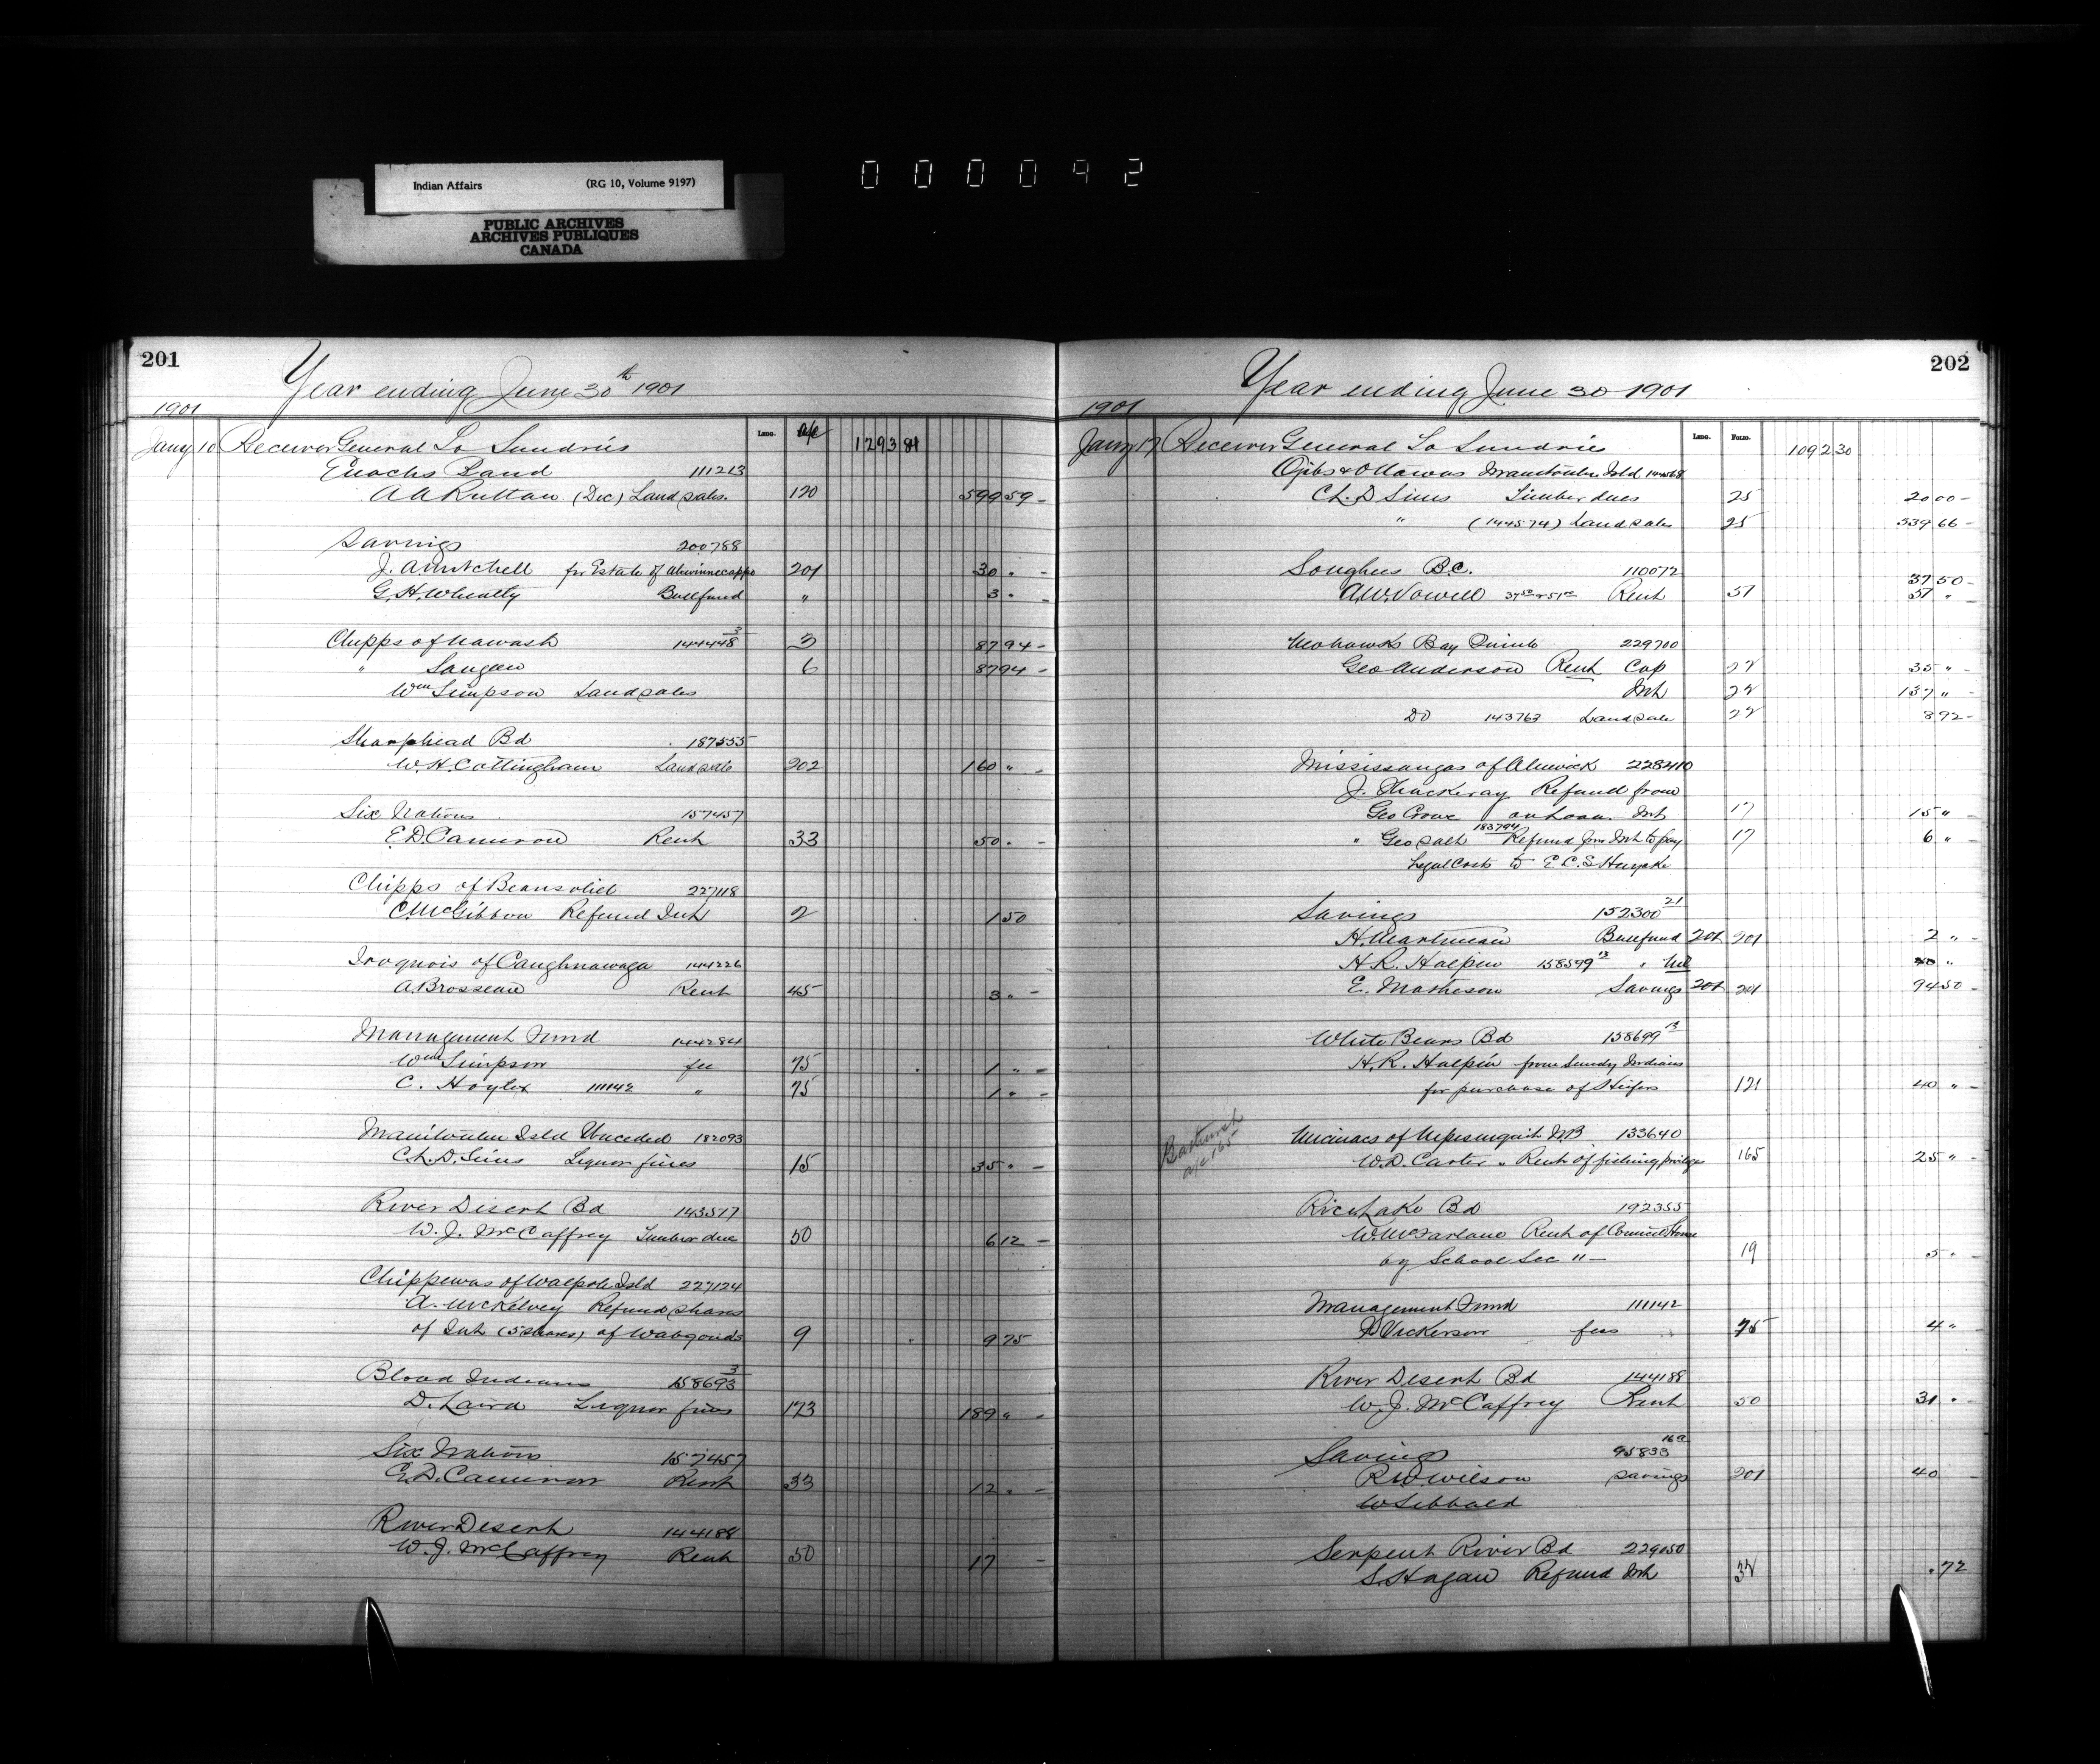 Indian Affairs (RG 10, Volume 9197)
PUBLIC ARCHIVES
ARCHIVES PUBLIQUES
CANADA
000092
201
Year ending June 30th 1901
1901
Lano. a/c
Jany 10 Receiver General To Sundries 1293 84
Enochs Band 111213
A A Ruttan (Dec) Land sales. 120 599 59 -
Savings 200788
J. A Mitchell for Estate of 201 30 " -
G. H. Wheatly Bull fund " 3 " -
Chipps of Nawash 144448 3 3 87 94 -
" Saugeen 6 87 94 -
Wm Simpson Land sales
Sharphead Bd 187555
W. H. Cottingham Land sale 202 160 " -
Six Nations 157457
E. D. Cameron Rent 33 50 " -
Chipps of Beausoliel 227118
C. McGibbon Refund Int 2 1 50
Iroquois of Caughnawaga 144226
A. Brosseau Rent 45 3 " -
Management Fund 144284
Wm Simpson fee 75 1 " -
C. Hoyler 111142 " 75 1 " -
Manitoulin Isld Unceded 182093
Ch. D. Sims Liquor fines 15 35 " -
River Desert Bd 143517
W. J. McCaffrey Timber dues 50 6 12 -
Chippewas of Walpole Isld 227124
A. McKelvey Refund shares
of Int (5 shares) of 9 9 75
Blood Indians 158693 3
D. Laird Liquor fines 173 189 " -
Six Nations 157457
E. D. Cameron Rent 33 12 " -
River Desert 144188
W. J. McCaffrey Rent 50 17 -
202
Year ending June 30 1901
1901
Lano. Folio.
Jany 17 Receiver General To Sundries 1092 30
Ojibs & Ottawas Manitoulin Isld 144568
Ch. D Sims Timber dues 25 20 00 -
" (144574) Land sales 25 539 66 -
Songhees B.C. 110072
37 50 -
A. W. Vowell Rent 51 51 " -
Mohawks Bay Quinte 229700
Geo Anderson Rent Cap 22 35 " -
Int 22 157 " -
Do 143763 Land sale 22 8 92 -
Mississaugas of Alnwick 228410
J. Thackeray Refund from
Geo Crowe on Loan. Int 17 15 "
183794
" Geo Salt Refund from Int to pay 17 6 " -
Legal Costs to E. C. S Huycke
Savings 152300 21
H. Martineau Bull fund 201 201 2 " -
H. R. Halpin 158599 13 " 40 "
E. Matheson Savings 201 201 94 50 -
White Bears Bd 158699 13
H. R. Halpin from Sundry Indians
for purchase of Heifers 121 40 " -
Bathurst
a/c 165
Micmacs of NB 133640
W. D. Carter " Rent of fishing privilege 165 25 " -
Rice Lake Bd 192355
W. McFarlane Rent of Council House
by School Sec 11 - 19 5 " -
Management Fund 111142
Vickerson fees 75 4 "
River Desert Bd 144188
W. J. McCaffrey Rent 50 31 " -
Savings 95833 16a
R. W. Wilson Savings 201 40 -
W Sibbald
Serpent River Bd 229050
S. Hagan Refund Int 32 . 72